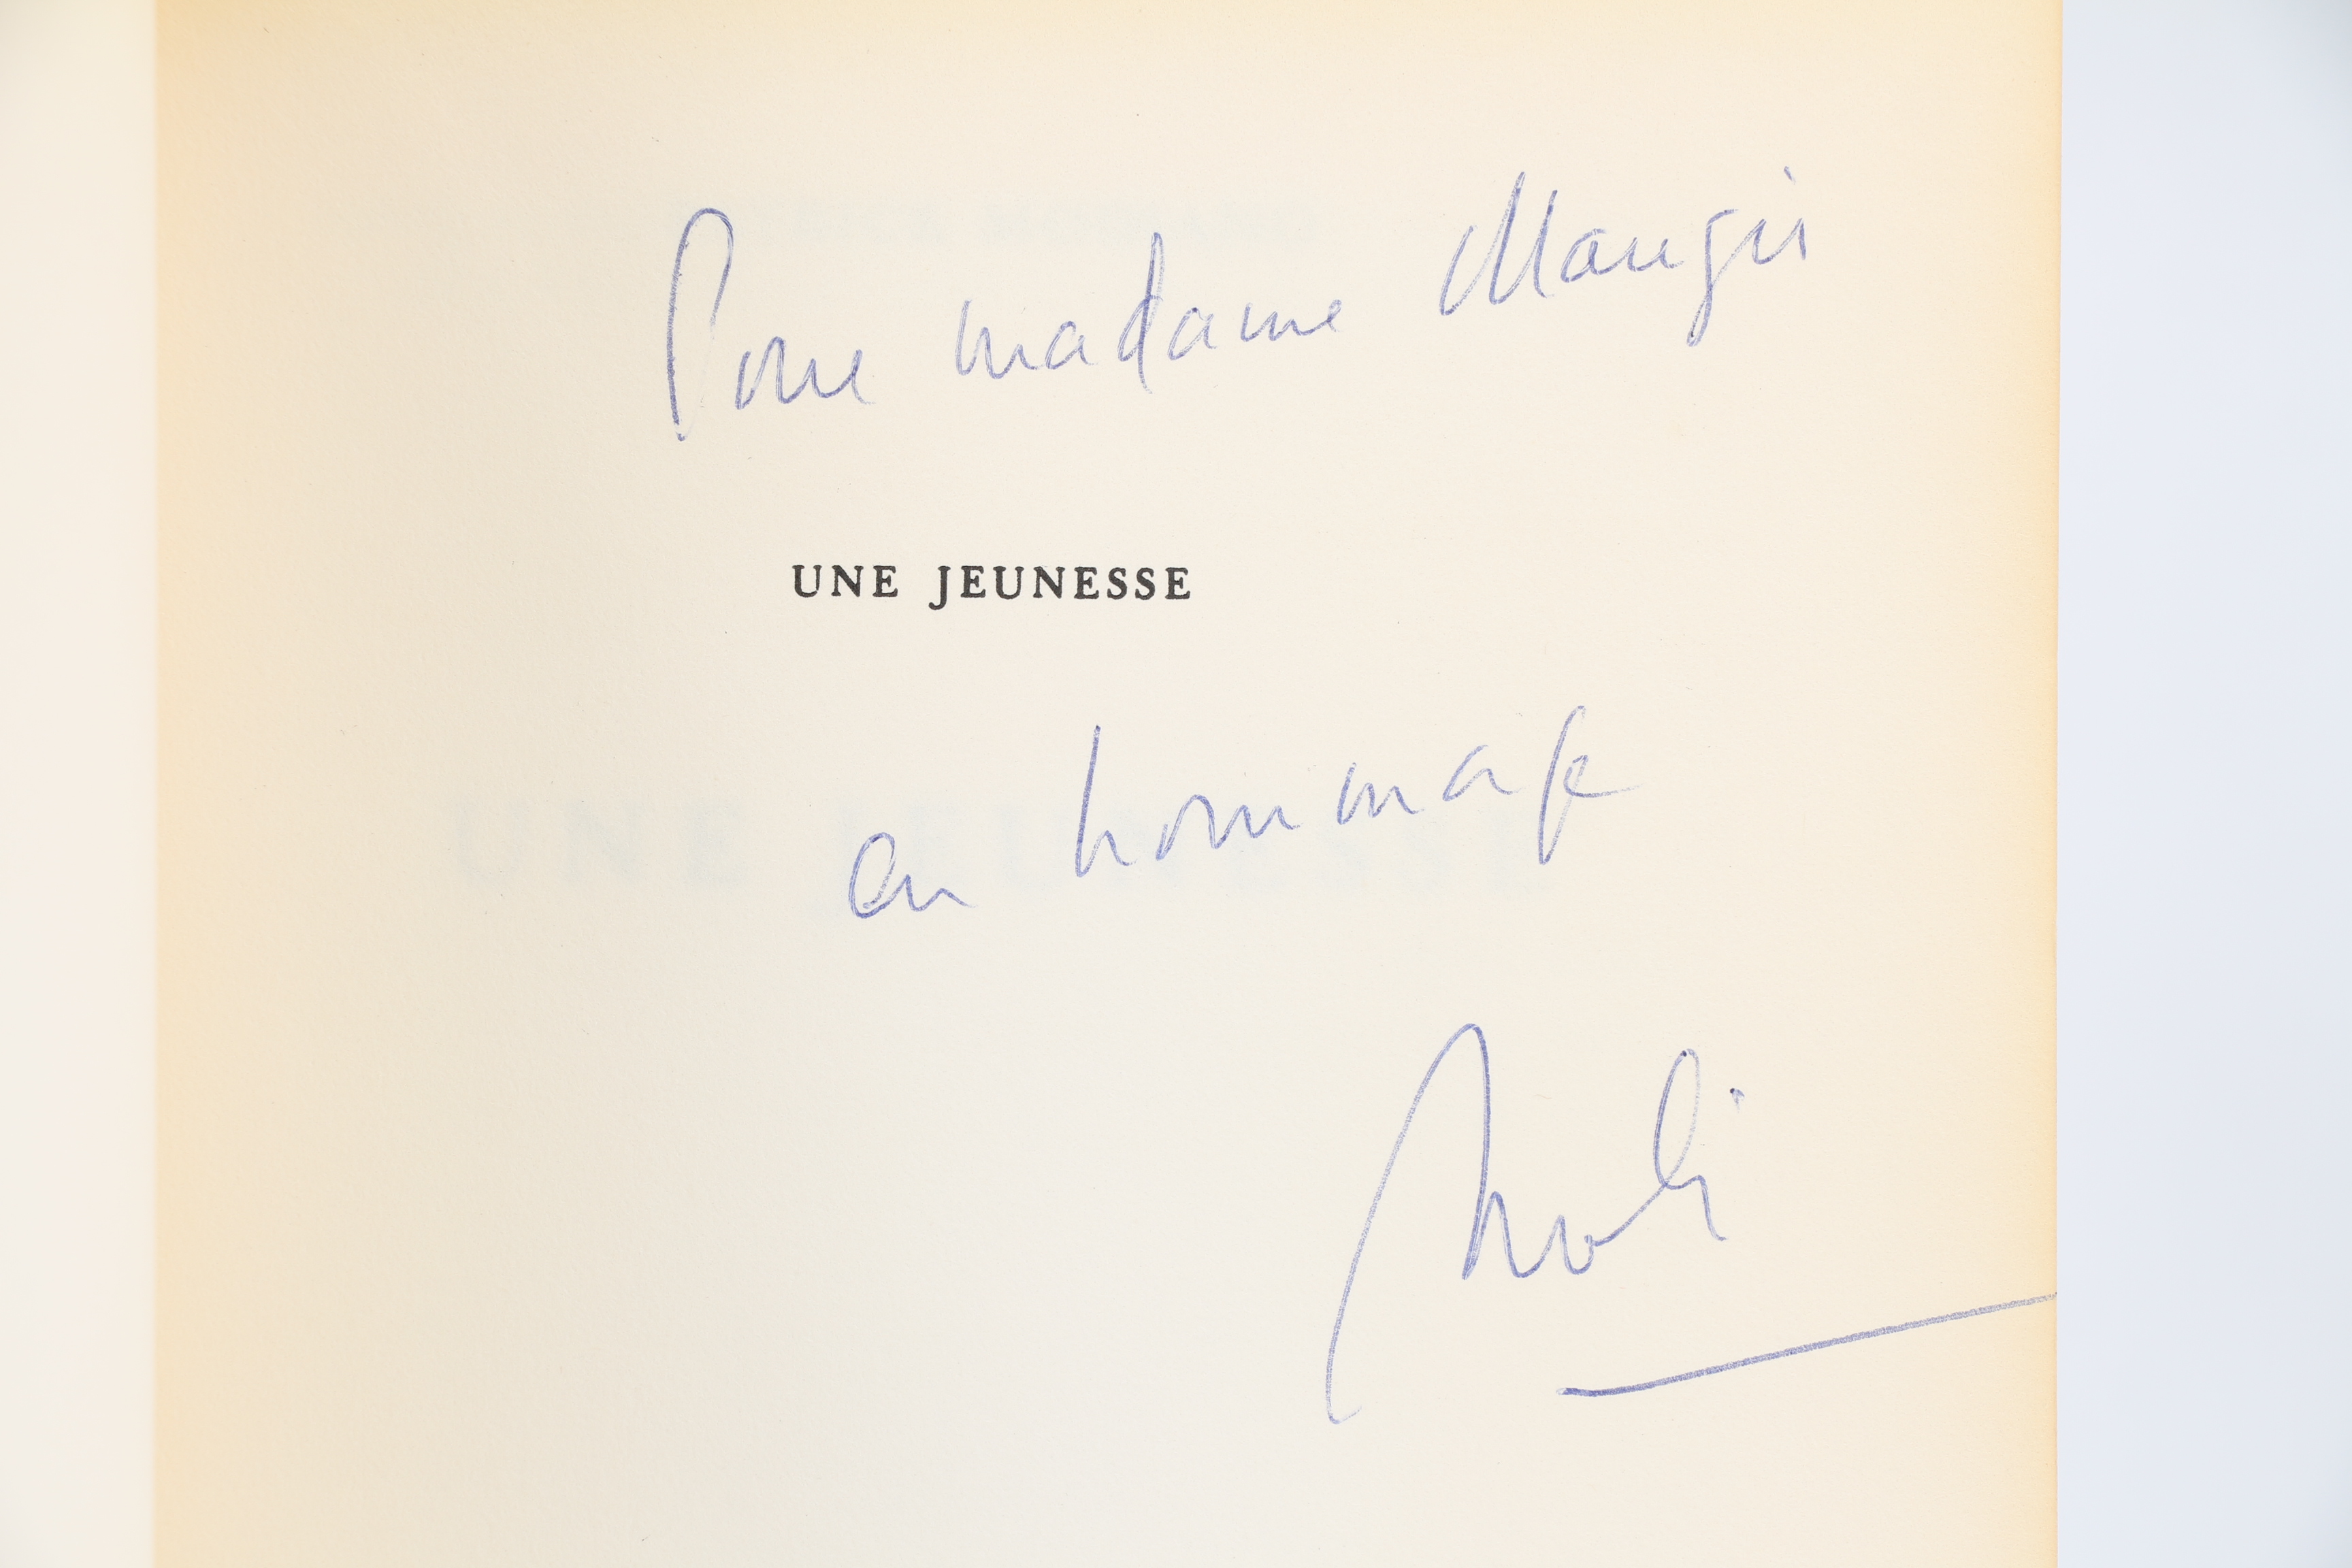 Pour madame Maugis
UNE JEUNESSE
en hommage